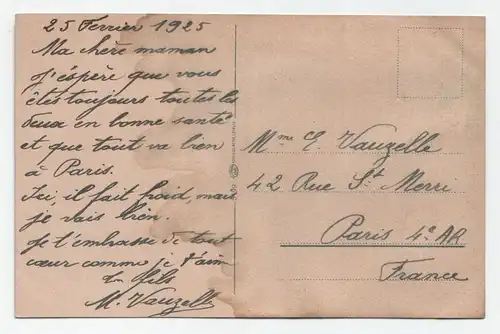 25 Fevrier 1925
Ma chère maman
J'éspère que vous
êtes toujours toutes les
deux en bonne santé
et que tout va bien
à Paris.
Ici, il fait froid, mais
je vais bien.
Je t'embrasse de tout
cœur comme je t'aim
ton fils
M. Vauzelle
Mme E. Vauzelle
42 Rue St Merri
Paris 4e AR
France